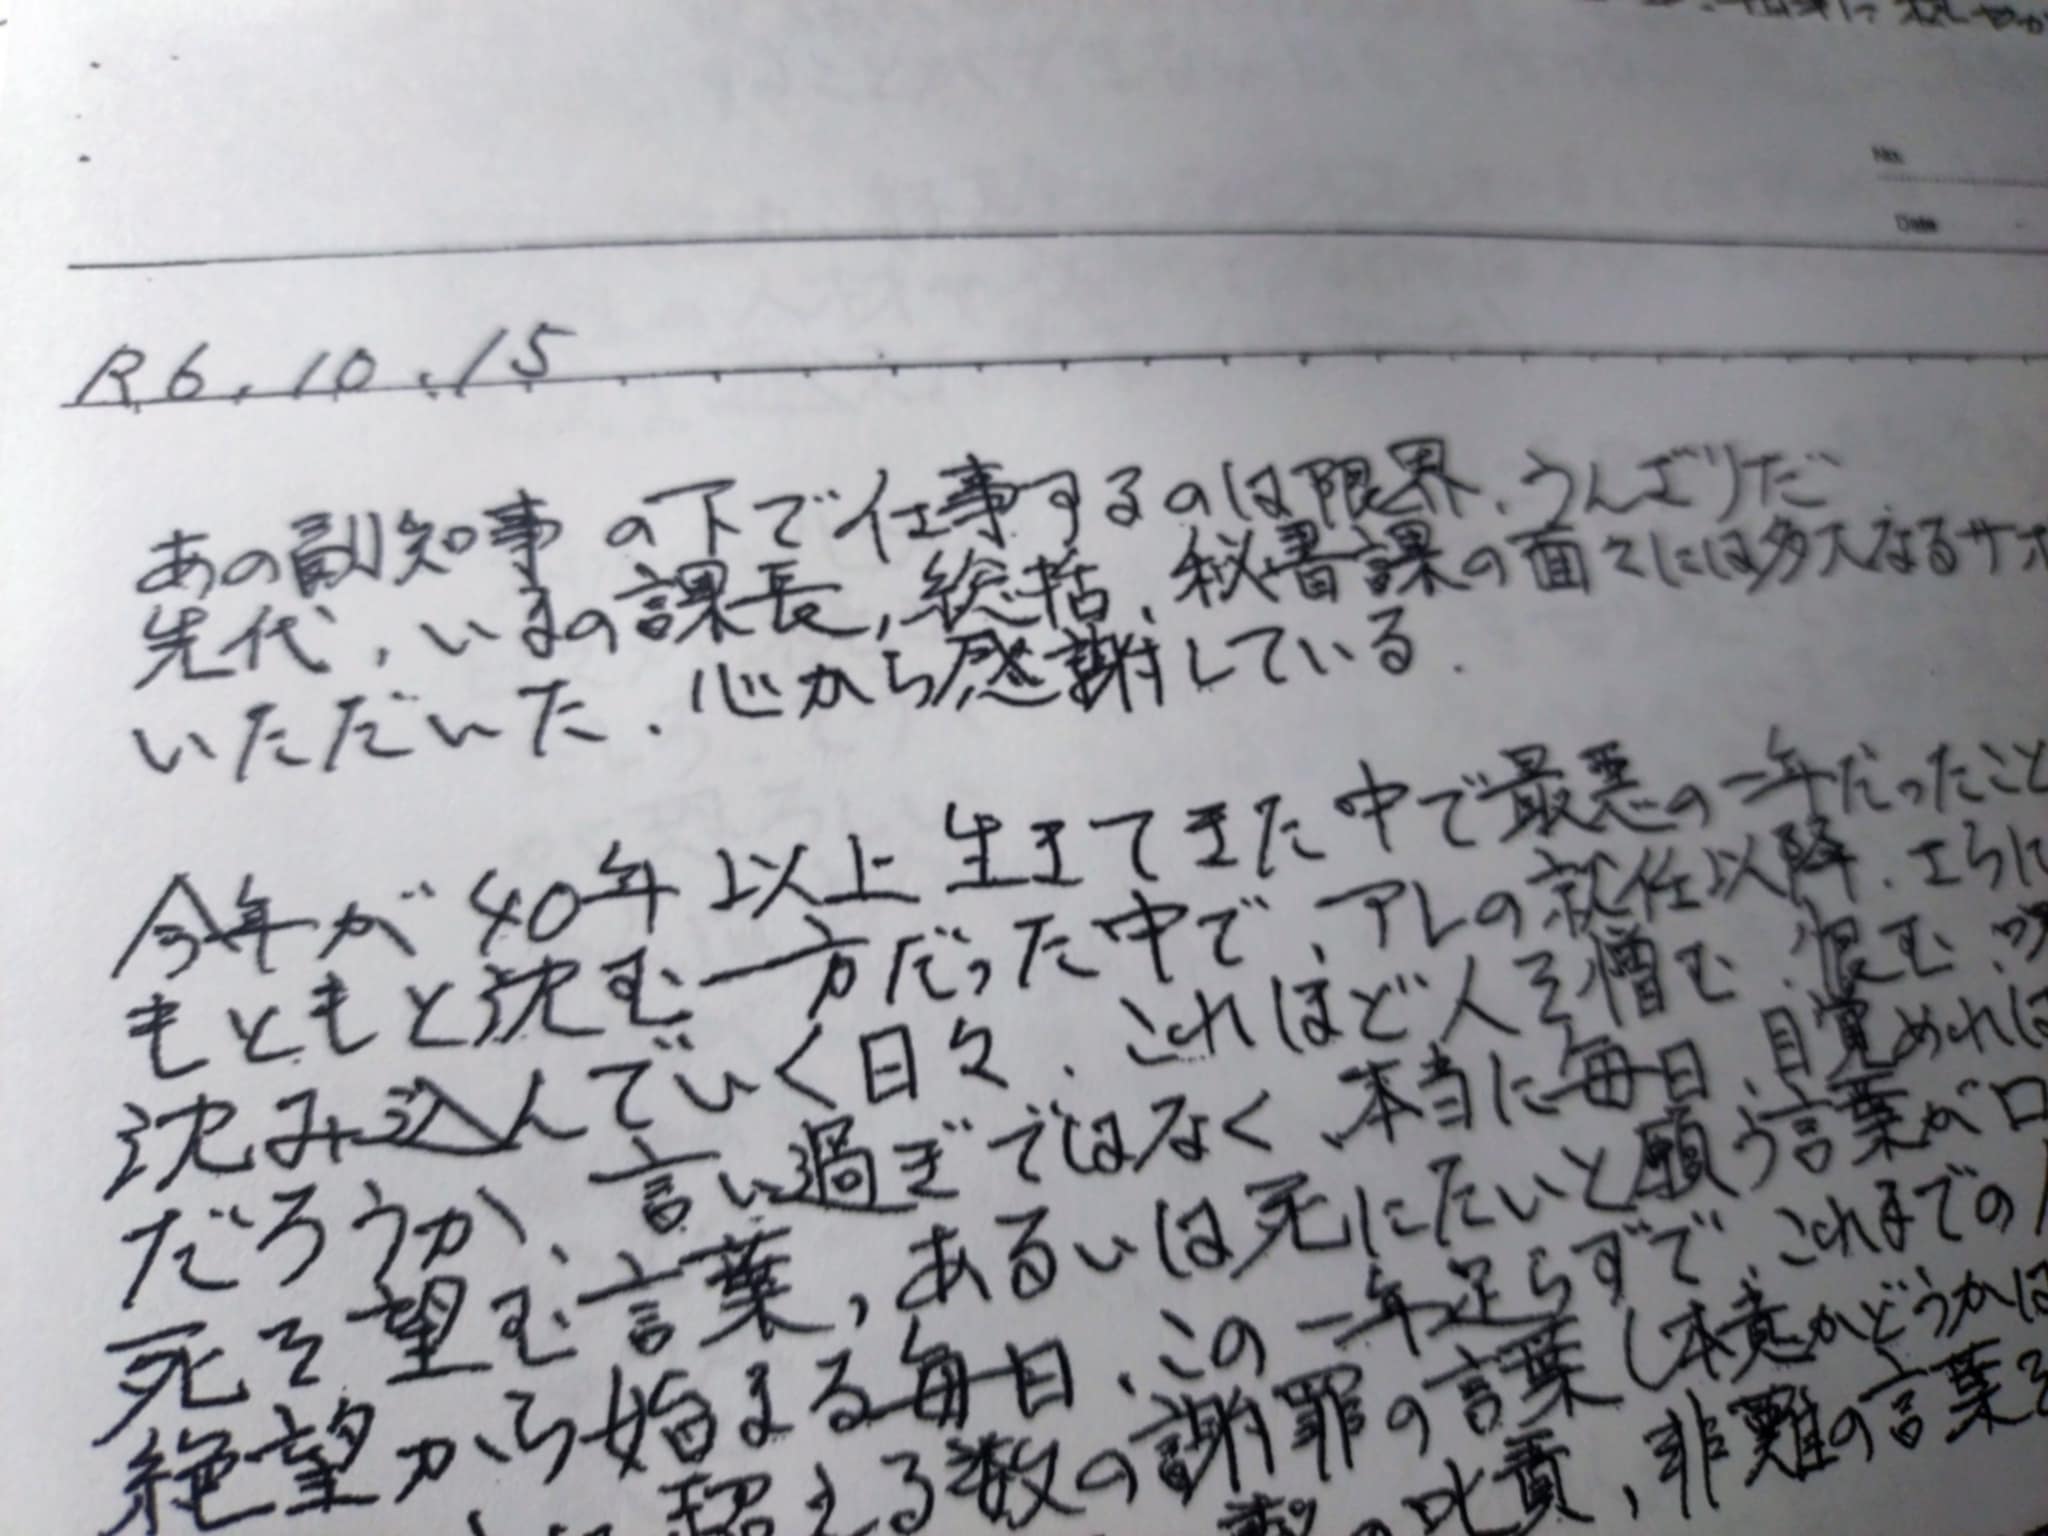 No.
Date
R6.10.15
あの副知事の下で仕事するのは限界、うんざりだ
先代、いまの課長、総括、秘書課の面々には多大なるサポ
いただいた、心から感謝している。
今年が40年以上生きてきた中で最悪の一年だったこと
もともと沈む一方だった中で、アレの就任以降、さらに
沈み込んでいく日々、これほど人を憎む、恨む、
だろうか、言い過ぎではなく、本当に毎日、目覚めれば
死を望む言葉、あるいは死にたいと願う言葉が口
絶望から始まる毎日、この一年足らずで、これまでの
超える数の謝罪の言葉(本意かどうかは
の叱責、非難の言葉を